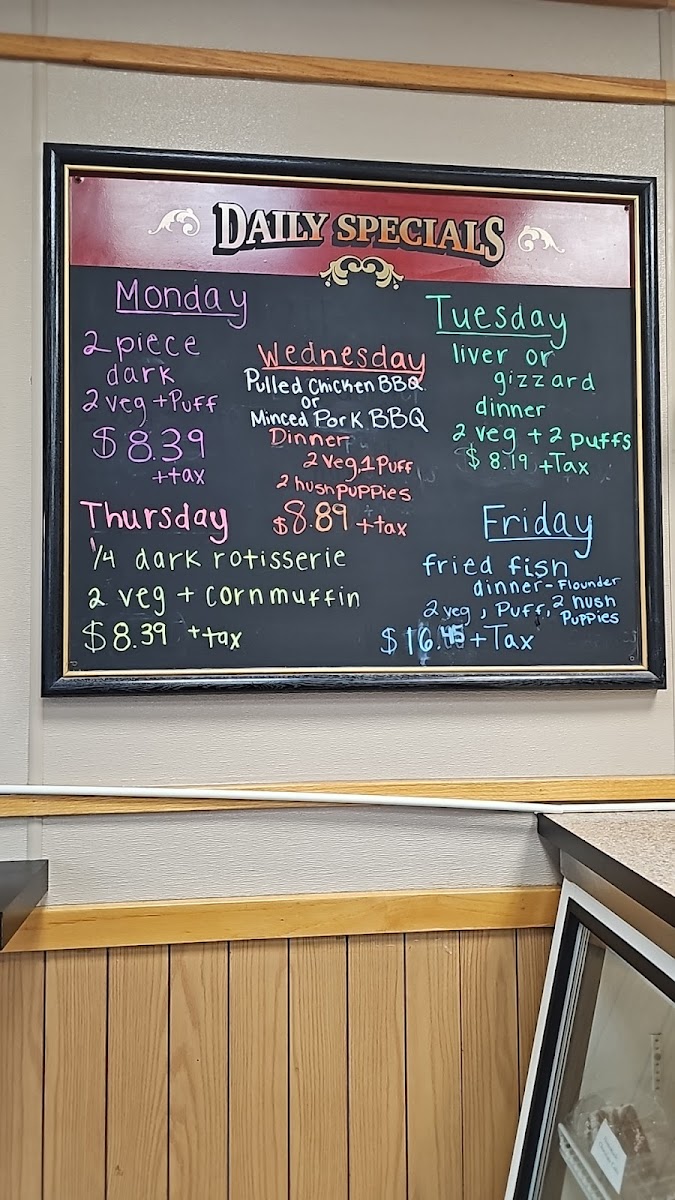 DAILY SPECIALS
Monday
2 piece
dark
2 veg + Puff
$8.39
+tax
Wednesday
Pulled Chicken BBQ
or
Minced Pork BBQ
Dinner
2 veg 1 Puff
2 hushpuppies
$8.89 + tax
Tuesday
liver or
gizzard
dinner
2 veg + 2 puffs
$8.19 + Tax
Thursday
1/4 dark rotisserie
2 veg + cornmuffin
$8.39 + tax
Friday
fried fish
dinner - Flounder
2 veg, Puff, 2 hush
Puppies
$16.45 + Tax